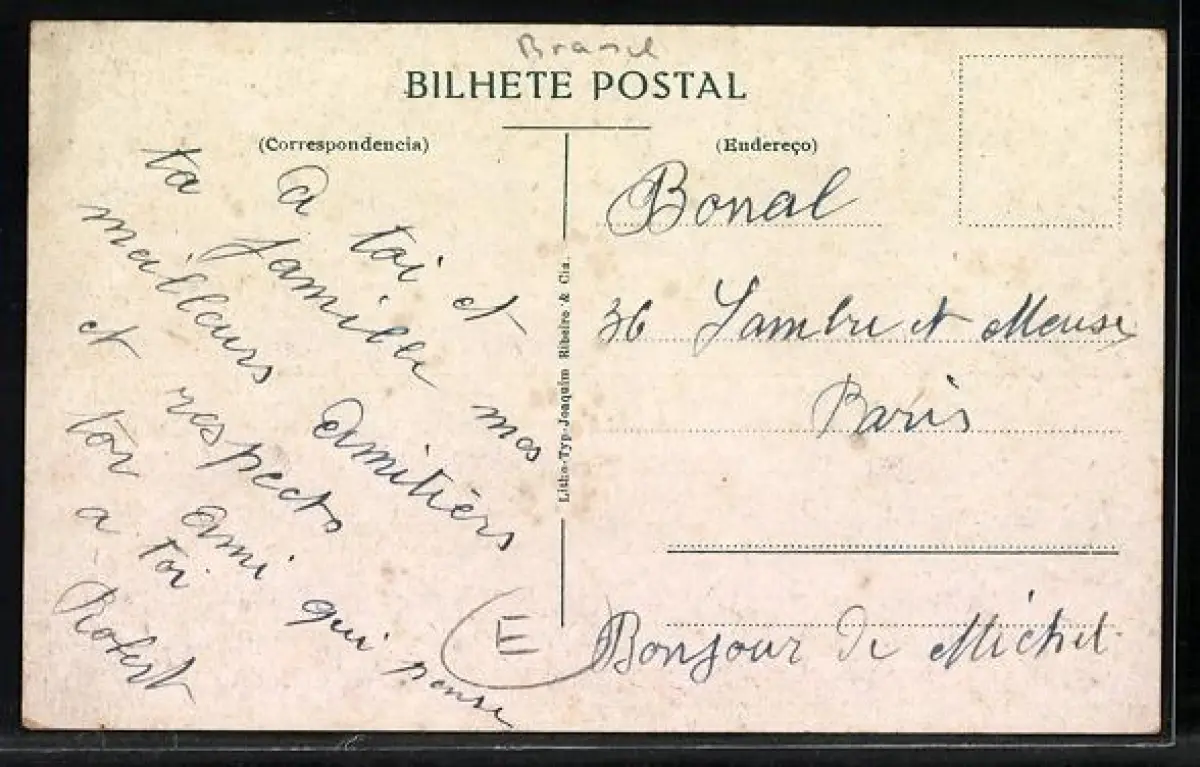 Brasil
BILHETE POSTAL
(Correspondencia)
A toi et
ta famille mes
meilleurs amitiérs
et respects
ton ami qui pense
a toi
Robert
Litho-Typ-Joaquim Ribeiro & Cia.
E
(Endereço)
Bonal
36 Sambre et Meuse
Paris
Bonjour de Michel